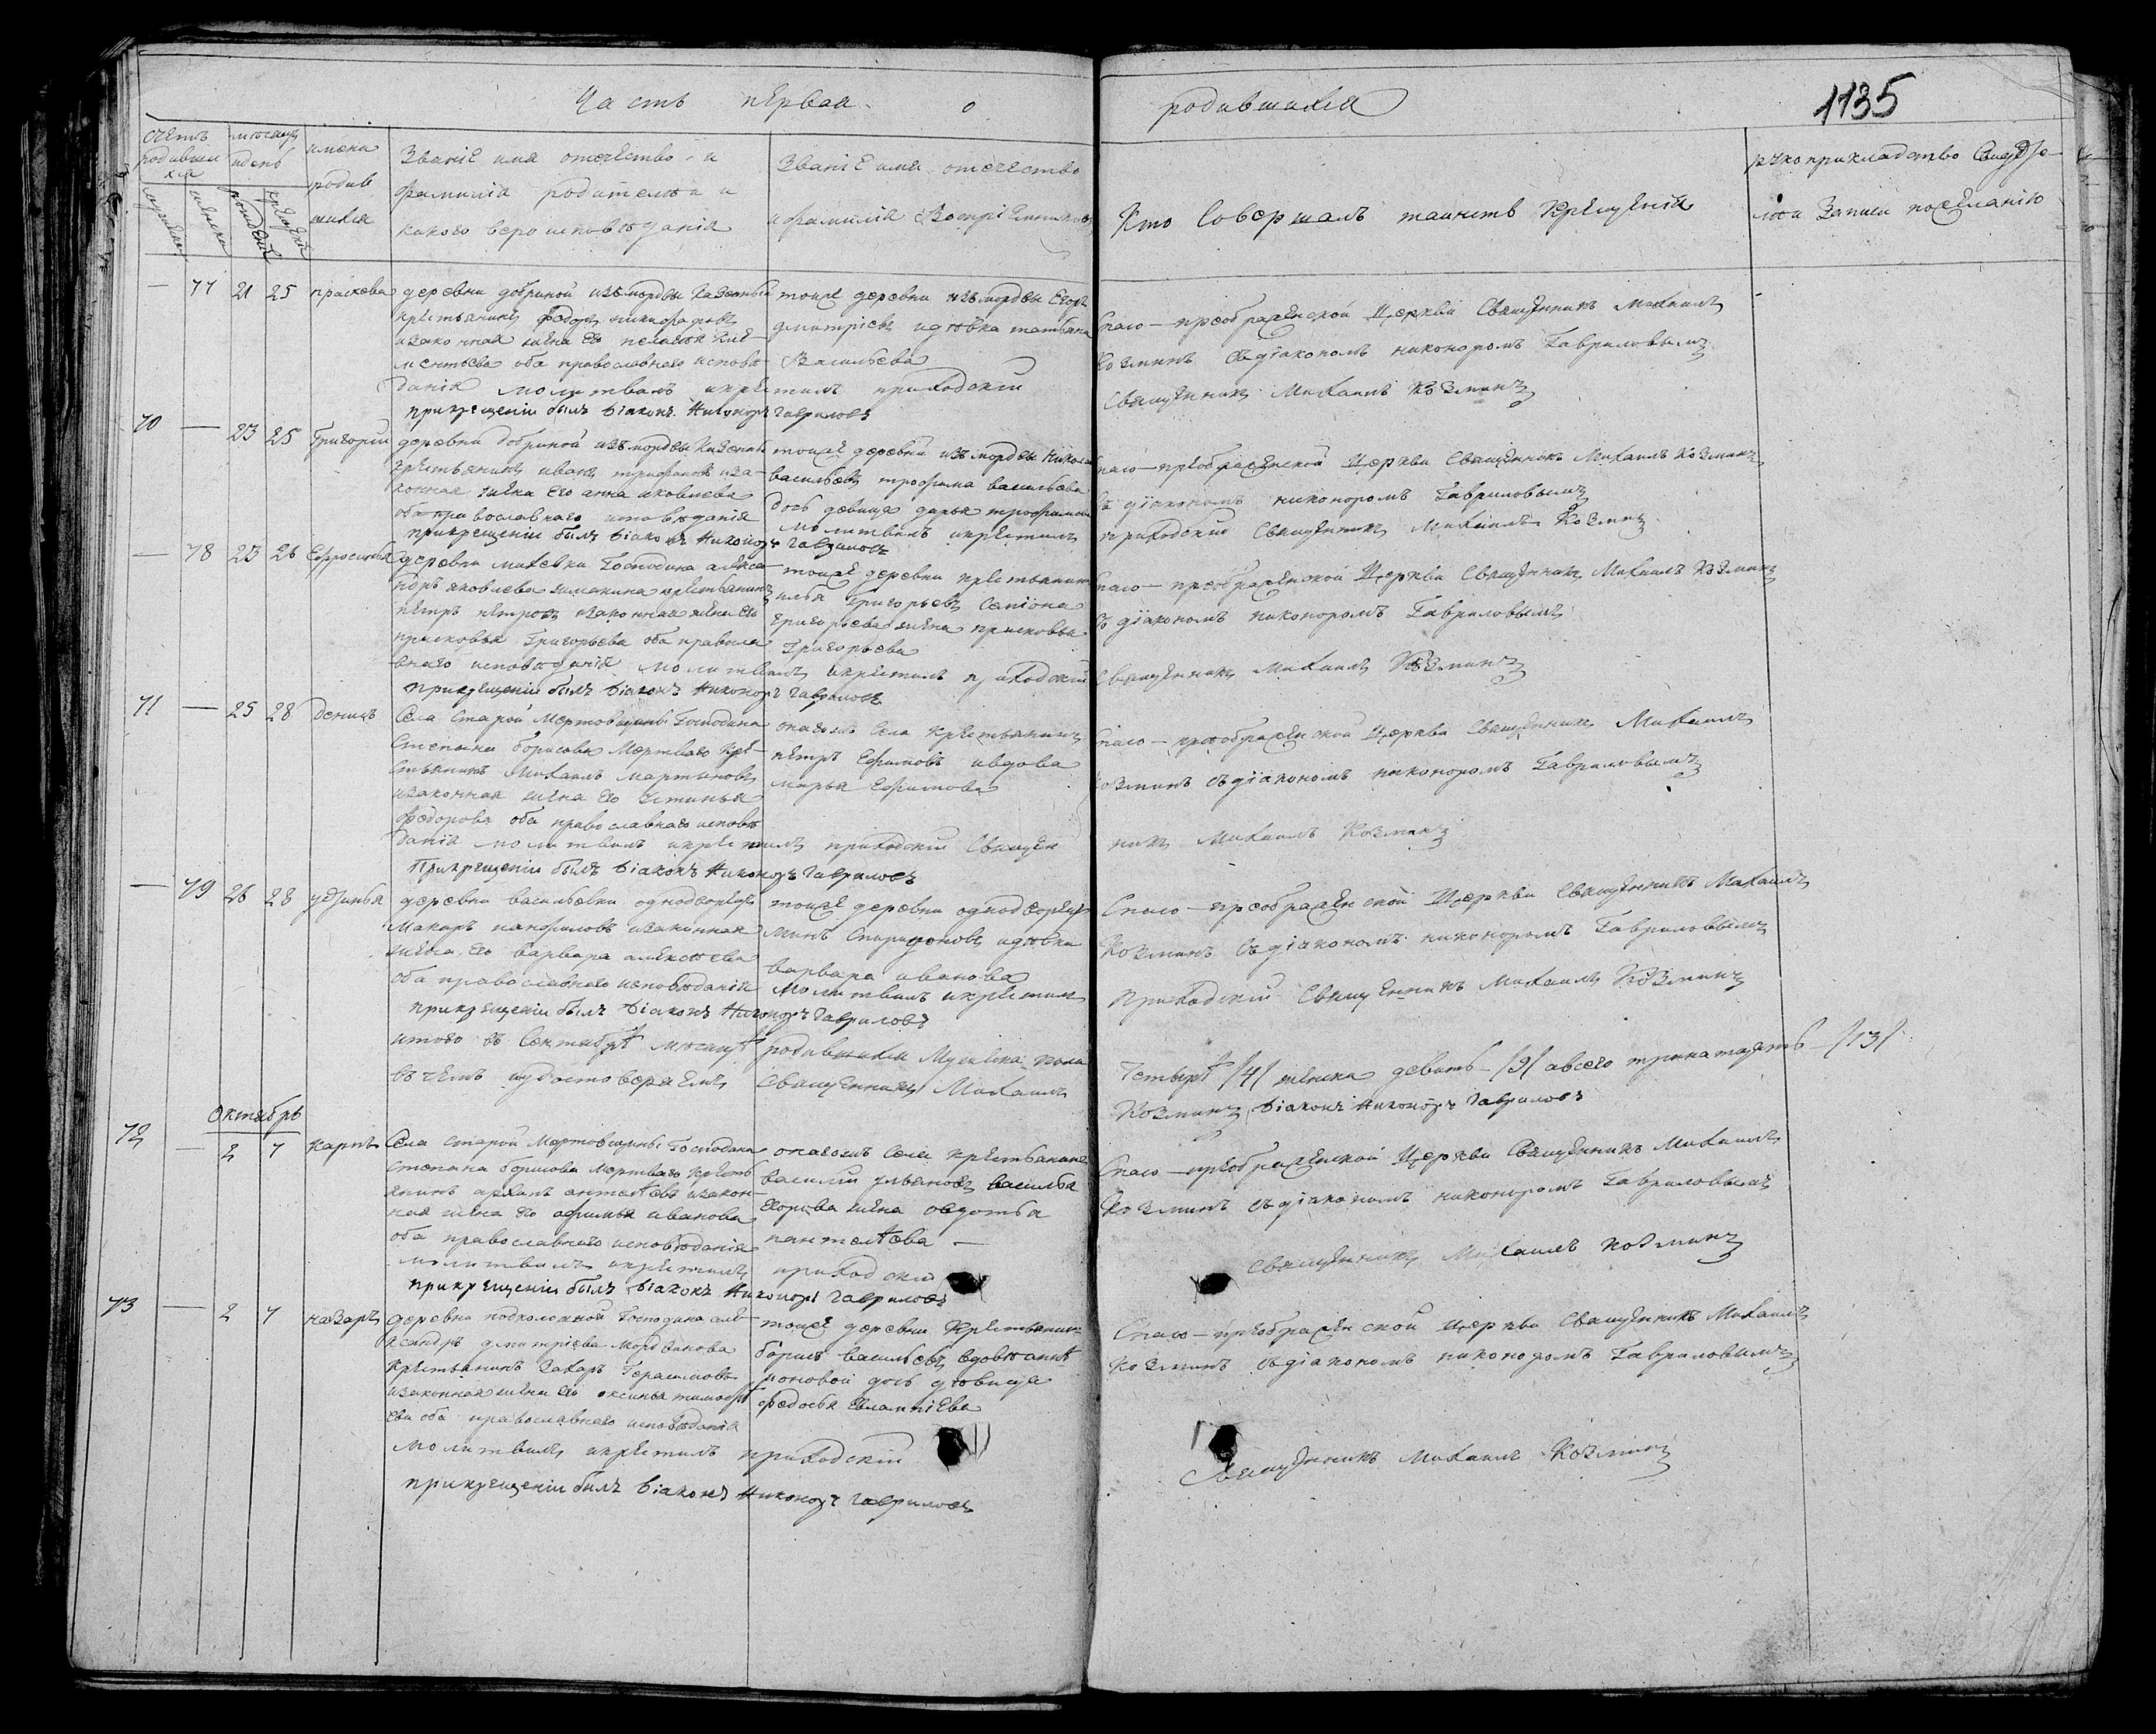 Часть первая о родившихся
1135
счетъ родившихся
мужеска
женска
месяцъ и день
рожденія
крещенія
имена родившихся
Званіе имя отечество и
фамилія родителей и
какого вероисповѣданія
Званіе имя отечество
и фамилія Воспріемниковъ
Кто Совершалъ таинств крещенія
рукоприкладство Свидѣте
лей Записи пожеланію
— 77 21 25 прасковья
деревни добриной изъ мордвы казенный
крестьянинъ федоръ никифоровъ
изаконная жена его пелагея кле
ментьева оба православнаго испове
данія молитвилъ икрестилъ приходскій
прикрещеніи былъ діаконъ Никоноръ Гавриловъ
тоиже деревни изъ мордвы Егоръ
дмитріевъ идѣвка татьяна
Васильева
Спасо-преображенской Церкви Священникъ Михаилъ
Козминъ съдіакономъ никоноромъ Гавриловымъ
Священникъ Михаилъ Козминъ
70 — 23 25 Григорій
деревни добриной изъ мордвы казенный
крестьянинъ иванъ трифоновъ иза
конная жена его анна яковлева
оба православнаго исповѣданія
прикрещеніи былъ діаконъ Никоноръ Гавриловъ
тоиже деревни изъ мордвы Никола
васильевъ трофима васильева
дочь девица дарья трофимова
молитвилъ икрестилъ
Спасо-преображенской Церкви Священникъ Михаилъ Козминъ
съ діакономъ никоноромъ Гавриловымъ
приходскій Священникъ Михаилъ Козминъ
— 78 23 26 Ефросинья
деревни михевки Господина алекса
ндръ яковлева крестьянинъ
петръ петровъ изаконная жена его
прасковья Григорьева оба правосла
внаго исповѣданія молитвилъ икрестилъ приходскій
прикрещеніи былъ діаконъ Никоноръ Гавриловъ
тоиже деревни крестьянинъ
илья Григорьевъ Семіона
григорьева жена прасковья
Григорьева
Спасо-преображенской Церкви Священникъ Михаилъ Козминъ
съ діакономъ никоноромъ Гавриловымъ
Священникъ Михаилъ Козминъ
71 — 25 28 денисъ
Села Старой Мертовщины Господина
Степана борисова Мертваго кре
стьянинъ Михаилъ мартыновъ
изаконная жена его устинья
федорова оба православнаго исповѣ
данія молитвилъ икрестилъ приходскій Священ
прикрещеніи былъ діаконъ Никоноръ Гавриловъ
онагожъ села крестьянинъ
петръ Ефимовъ ивдова
марья Ефимова
Спасо-преображенской Церкви Священникъ Михаилъ
Козминъ съдіакономъ никоноромъ Гавриловымъ
никъ Михаилъ Козминъ
— 79 26 28 устинья
деревни васильевки однодворецъ
Макаръ панфиловъ изаконная
жена его варвара алексеева
оба православнаго исповѣданія
прикрещеніи былъ діаконъ Никоноръ Гавриловъ
тоиже деревни однодворецъ
Спиридоновъ идѣвка
варвара иванова
молитвилъ икрестилъ
Спасо-преображенской Церкви Священникъ Михаилъ
Козминъ съдіакономъ никоноромъ Гавриловымъ
приходскій Священникъ Михаилъ Козминъ
итого въ Сентябрѣ месяцѣ родившихся Мужеска пола
Четыре /4/ женска девять /9/ авсего тринатцать /13/
въ чемъ иудостоверяемъ Священникъ Михаилъ
Козминъ, діаконъ Никоноръ Гавриловъ
Октябрь
72 — 2 7 карпъ
Села Старой Мертовщины Господина
Степана борисова Мертваго кресть
янинъ архипъ антоновъ изакон
ная жена его афимья иванова
оба православнаго исповѣданія
молитвилъ икрестилъ приходскій
прикрещеніи былъ діаконъ Никоноръ Гавриловъ
онагожъ села крестьянинъ
василій ульяновъ василья
Егорова жена овдотья
пантелѣева —
Спасо-преображенской Церкви Священникъ Михаилъ
Козминъ съдіакономъ никоноромъ Гавриловымъ
Священникъ Михаилъ Козминъ
73 — 2 7 назаръ
деревни Господина але
ксандръ дмитріева Мордвинова
крестьянинъ Захаръ Герасимовъ
изаконная жена его аксинья тимофѣ
ева оба православнаго исповѣданія
молитвилъ икрестилъ приходскій
прикрещеніи былъ діаконъ Никоноръ Гавриловъ
тоиже деревни крестьянинъ
борисъ васильевъ вдовы
дочь дѣвица
федосья Евлампіева
Спасо-преображенской Церкви Священникъ Михаилъ
Козминъ съдіакономъ никоноромъ Гавриловымъ
Священникъ Михаилъ Козминъ